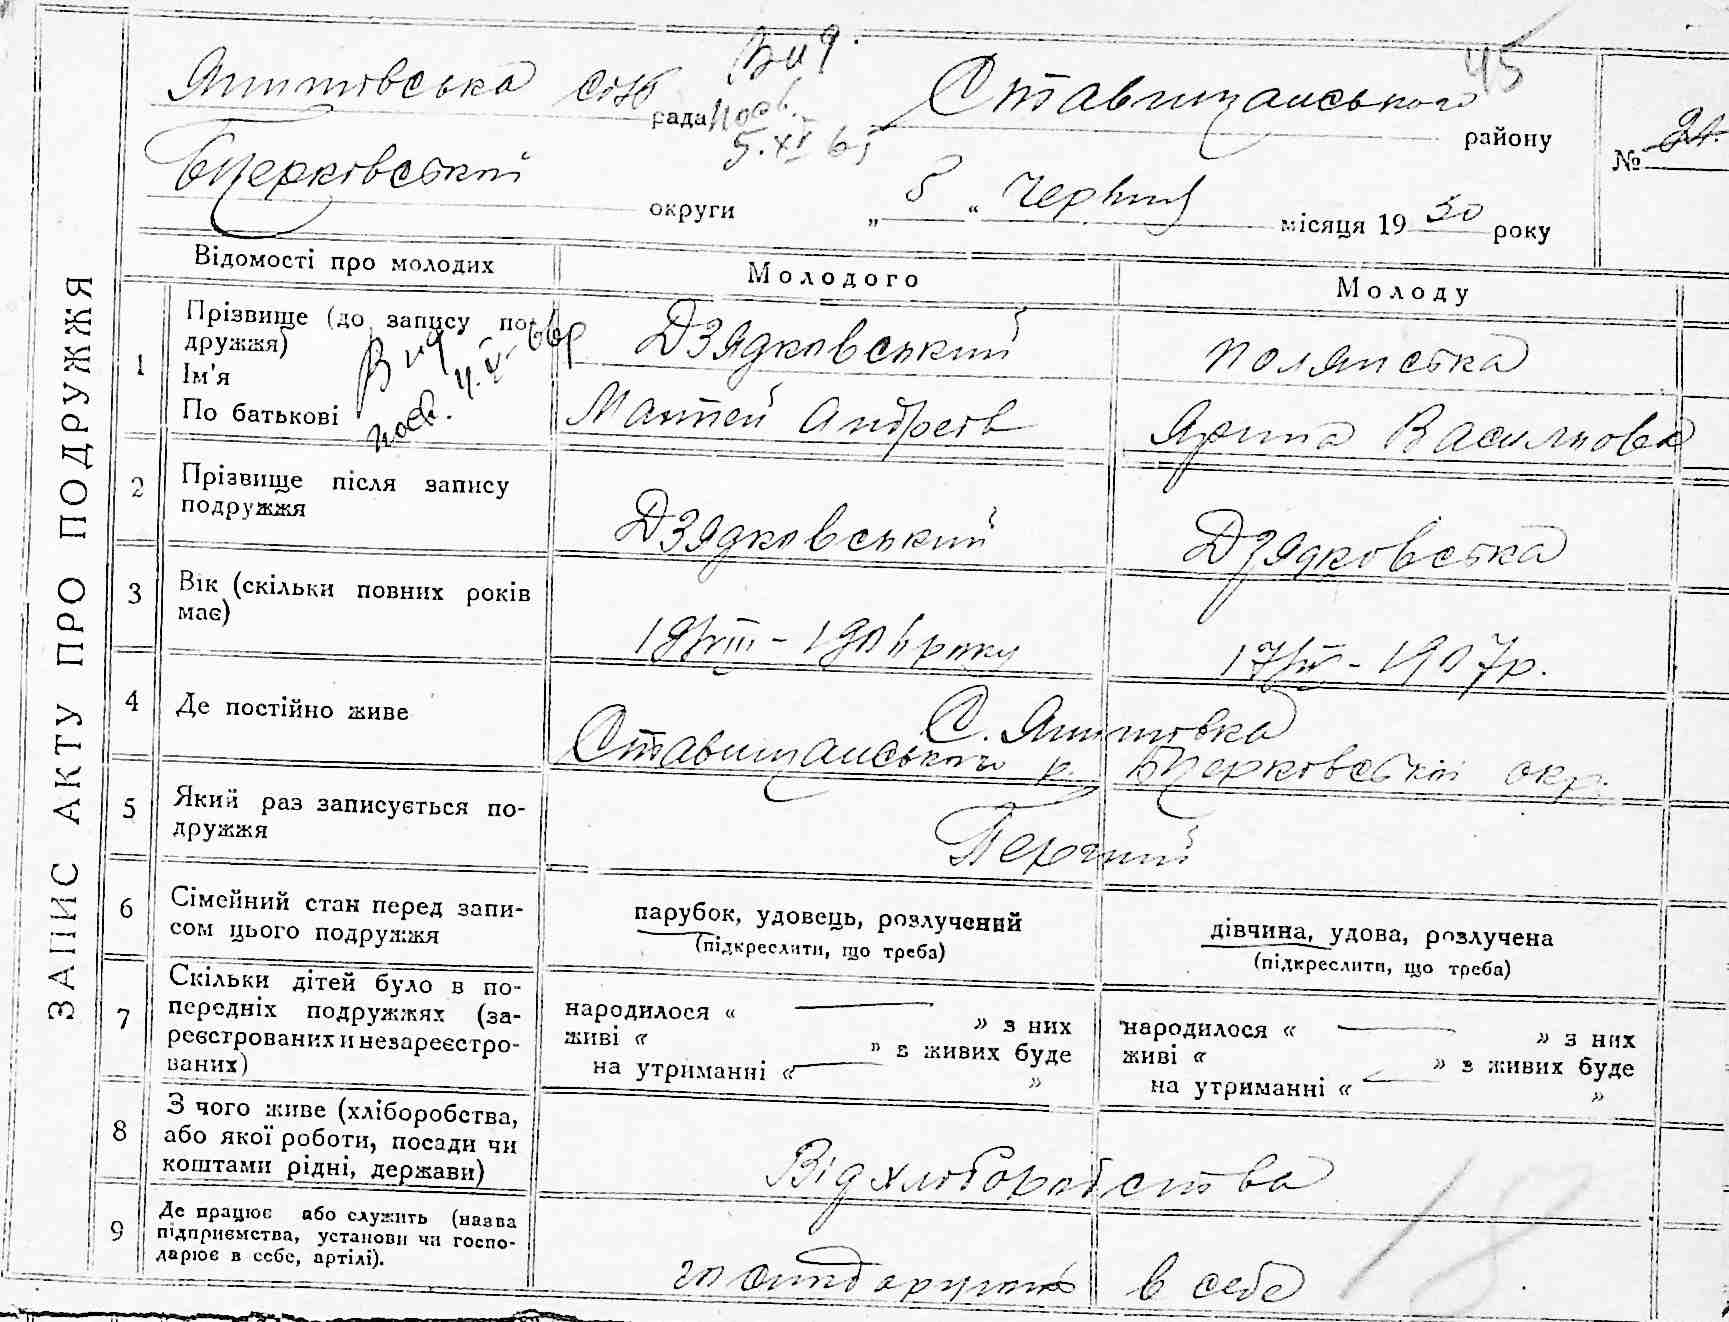 45
Вид.
Яштовська сіль рада
пасп.
5.XI 65
Ставищанського району
№ 24.
Бцерковський округи
„ 8 “ червня місяця 1930 року
ЗАПИС АКТУ ПРО ПОДРУЖЖЯ
Відомості про молодих
Молодого
Молоду
1
Прізвище (до запису по-
дружжя)
Ім'я
По батькові
Вид
пасп.
Дзядковський
Матвей Андреєв
Полянська
Ярина Василовна
2
Прізвище після запису
подружжя
Дзядковський
Дзядковська
3
Вік (скільки повних років
має)
року
17/IV - 1907р.
4
Де постійно живе
С.
Ставищанського р. Бцерковської окр.
5
Який раз записується по-
дружжя
Перший
6
Сімейний стан перед запи-
сом цього подружжя
парубок, удовець, розлучений
(підкреслити, що треба)
дівчина, удова, розлучена
(підкреслити, що треба)
7
Скільки дітей було в по-
передніх подружжях (за-
реєстрованих и незареєстро-
ваних)
народилося «
» з них
живі « » з живих буде
на утриманні « »
народилося «
» з них
живі « » з живих буде
на утриманні « »
8
З чого живе (хліборобства,
або якої роботи, посади чи
коштами рідні, держави)
Від хлоборобства
9
Де працює або служить (назва
підприємства, установи чи госпо-
дарює в себе, артілі).
в себе
18